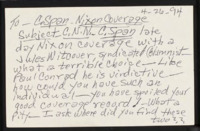 4-26-94
To - C-Span Nixon Coverage
Subject C.N.N. C-Span late
day Nixon coverage with a
Jules Witcover syndicated columnist
what a terrible choice - Like
Paul Conrad he is vindictive -
how could you have such an
individual - You have spoiled your
good coverage record! - What a
pity - I ask where did you find these